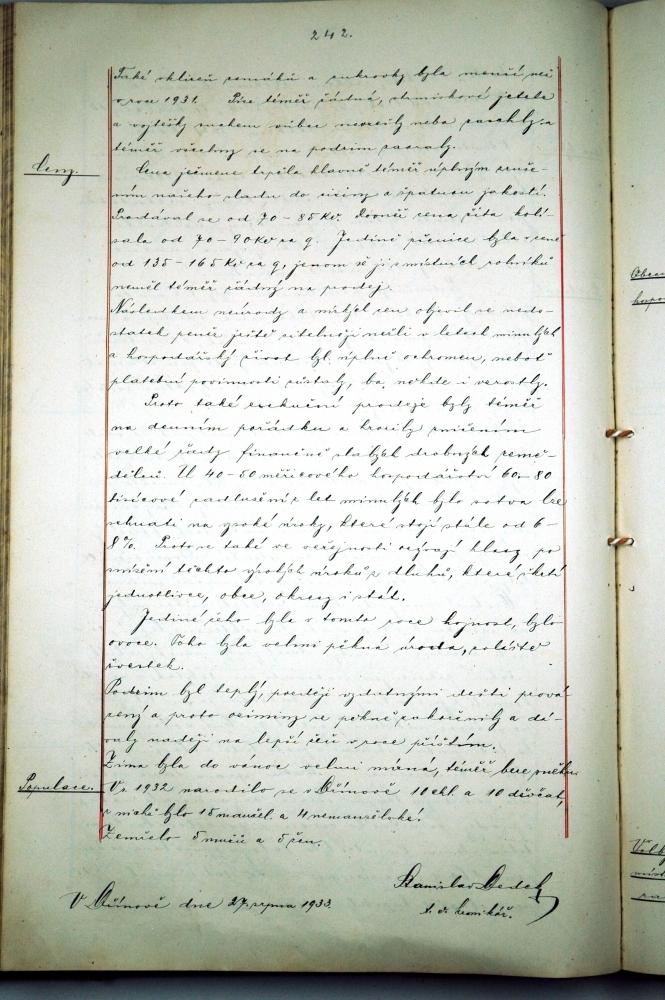 242.
Také sklizeň zemáků a cukrovky byla menší než
v roce 1931. Píce téměř žádná, strniskové jetele
a vojtěšky suchem vůbec nevzešly neba zaschly a
téměř všechny se na podzim zaoraly.
Ceny.
Cena ječmene trpěla hlavně téměř úplným zruše-
ním našeho sladu do ciziny a špatnou jakostí.
Prodával se od 70 – 85 Kč. Rovněž cena žita kolí-
sala od 70 – 90 Kč za q. Jedině pšenice byla v ceně
od 135 – 165 Kč za q, jenom že jí z místních rolníků
neměl téměř žádný na prodej.
Následkem neúrody a nízkých cen objevil se nedo-
statek peněz ještě citelněji nežli v letech minulých
a hospodářský život byl úplně ochromen, neboť
platební povinnosti zůstaly, ba, někde i vzrostly.
Proto také exekuční prodeje byly téměř
na denním pořádku a hrozily zničením
velké řady finančně slabých drobných země-
dělců. U 40 – 50 měřicového hospodářství 60 – 80
tisícové zadlužení z let minulých bylo sotva lze
sehnati na vysoké úroky, které stojí stále od 6 –
8 %. Proto se také ve veřejnosti ozývají hlasy po
snížení těchto vysokých úroků z dluhů, které tíží
jednotlivce, obce, okresy i stát.
Jediné čeho byla v tomto roce hojnost, bylo
ovoce. Toho byla velmi pěkná úroda, zvláště
švestek.
Podzim byl teplý, později vydatnými dešti prová-
zený a proto oziminy se pěkně zakořenily a dá-
valy naději na lepší žeň v roce příštím.
Zima byla do vánoc velmi mírná, téměř beze sněhu.
Populace.
V r. 1932 narodilo se v 11 chl. a 10 děvčat,
z nichž bylo manžel. a 4 nemanželské.
Zemřelo 5 mužů a 5 žen.
V dne 27. srpna 1933.
Stanislav
t. č. kronikář.